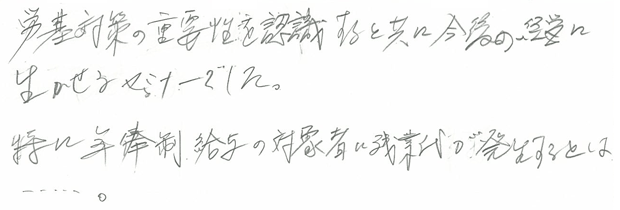 労基対策の重要性を認識すると共に今後の経営に
生かせるセミナーでした。
特に年俸制給与の対象者に残業代が発生するとは
……。